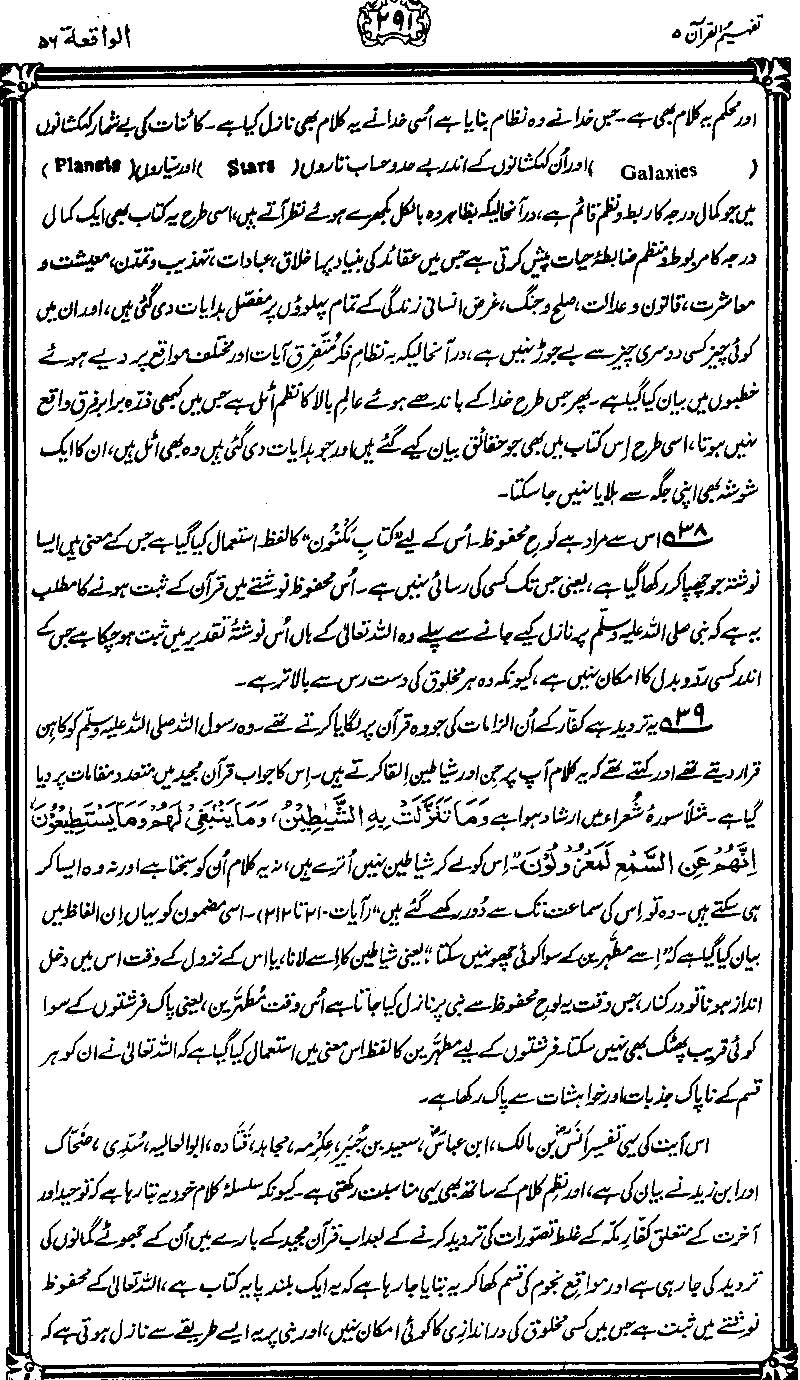 تفہیم القرآن ۵
۲۹۱
الواقعۃ ۵۶
اور محکم یہ کلام بھی ہے۔ جس خدا نے وہ نظام بنایا ہے اُسی خدا نے یہ کلام بھی نازل کیا ہے۔ کائنات کی بے شمار کہکشانوں
( Galaxies )اور اُن کہکشانوں کے اندر بے حد و حساب تاروں( Stars )اور سیّاروں(Planets )
میں جو کمال درجہ کا ربط و نظم قائم ہے، درآنحالیکہ بظاہر وہ بالکل بکھرے ہوئے نظر آتے ہیں، اسی طرح یہ کتاب بھی ایک کمال
درجہ کا مربوط و منظم ضابطۂ حیات پیش کرتی ہے جس میں عقائد کی بنیاد پر اخلاق، عبادات، تہذیب و تمدن، معیشت و
معاشرت، قانون و عدالت، صلح و جنگ، غرض انسانی زندگی کے تمام پہلوؤں پر مفصّل ہدایات دی گئی ہیں، اور ان میں
کوئی چیز کسی دوسری چیز سے بے جوڑ نہیں ہے، درآنحالیکہ یہ نظامِ فکر متفرق آیات اور مختلف مواقع پر دیے ہوئے
خطبوں میں بیان کیا گیا ہے۔ پھر جس طرح خدا کے باندھے ہوئے عالمِ بالا کا نظم اٹل ہے جس میں کبھی ذرّہ برابر فرق واقع
نہیں ہوتا، اسی طرح اِس کتاب میں بھی جو حقائق بیان کیے گئے ہیں اور جو ہدایات دی گئی ہیں وہ بھی اٹل ہیں، ان کا ایک
شوشہ بھی اپنی جگہ سے ہلایا نہیں جا سکتا۔
۳۸ اس سے مراد ہے لوحِ محفوظ۔ اُس کے لیے ”کتابٍ مَّکْنُون“ کا لفظ استعمال کیا گیا ہے جس کے معنی ہیں ایسا
نوشتہ جو چھپا کر رکھا گیا ہے، یعنی جس تک کسی کی رسائی نہیں ہے۔ اُس محفوظ نوشتے میں قرآن کے ثبت ہونے کا مطلب
یہ ہے کہ نبی صلی اللہ علیہ وسلّم پر نازل کیے جانے سے پہلے وہ اللہ تعالیٰ کے ہاں اُس نوشتۂ تقدیر میں ثبت ہو چکا ہے جس کے
اندر کسی ردّ و بدل کا امکان نہیں ہے، کیونکہ وہ ہر مخلوق کی دست رس سے بالاتر ہے۔
۳۹ یہ تردید ہے کفّار کے اُن الزامات کی جو وہ قرآن پر لگایا کرتے تھے۔ وہ رسول اللہ صلی اللہ علیہ وسلّم کو کاہن
قرار دیتے تھے اور کہتے تھے کہ یہ کلام آپ پر جن اور شیاطین اِلقا کرتے ہیں۔ اِس کا جواب قرآن مجید میں متعدد مقامات پر دیا
گیا ہے۔ مثلاً سورۂ شُعراء میں ارشاد ہوا ہے وَمَا تَنَزَّلَتْ بِهِ الشَّيٰطِيْنُ، وَمَا يَنْبَغِيْ لَهُمْ وَمَا يَسْتَطِيْعُوْنَ،
اِنَّهُمْ عَنِ السَّمْعِ لَمَعْزُوْلُوْنَ۔ ”اِس کو لے کر شیاطین نہیں اُترے ہیں، نہ یہ کلام اُن کو سجتا ہے اور نہ وہ ایسا کر
ہی سکتے ہیں۔ وہ تو اِس کی سماعت تک سے دُور رکھے گئے ہیں“ (آیات ۲۱۰ تا ۲۱۲)۔ اسی مضمون کو یہاں اِن الفاظ میں
بیان کیا گیا ہے کہ ”اِسے مطہّرین کے سوا کوئی چھو نہیں سکتا“، یعنی شیاطین کا اِسے لانا، یا اس کے نزول کے وقت اس میں دخل
انداز ہونا تو درکنار، جس وقت یہ لوحِ محفوظ سے نبی پر نازل کیا جاتا ہے اُس وقت مُطہّرین، یعنی پاک فرشتوں کے سوا
کوئی قریب پھٹک بھی نہیں سکتا۔ فرشتوں کے لیے مطہّرین کا لفظ اس معنی میں استعمال کیا گیا ہے کہ اللہ تعالیٰ نے ان کو ہر
قسم کے ناپاک جذبات اور خواہشات سے پاک رکھا ہے۔
اس آیت کی یہی تفسیر انسؓ بن مالک، ابن عباسؓ، سعید بن جُبیر، عِکرِمہ، مجاہد، قَتادہ، ابوالعالیہ، سُدّی، ضحّاک
اور ابن زید نے بیان کی ہے، اور نظمِ کلام کے ساتھ بھی یہی مناسبت رکھتی ہے۔ کیونکہ سلسلۂ کلام خود یہ بتا رہا ہے کہ توحید اور
آخرت کے متعلق کفّارِ مکّہ کے غلط تصوّرات کی تردید کرنے کے بعد اب قرآن مجید کے بارے میں اُن کے جھوٹے گمانوں کی
تردید کی جا رہی ہے اور مواقعِ نجوم کی قسم کھا کر یہ بتایا جا رہا ہے کہ یہ ایک بلند پایہ کتاب ہے، اللہ تعالیٰ کے محفوظ
نوشتے میں ثبت ہے جس میں کسی مخلوق کی دراندازی کا کوئی امکان نہیں، اور نبی پر یہ ایسے طریقے سے نازل ہوتی ہے کہ